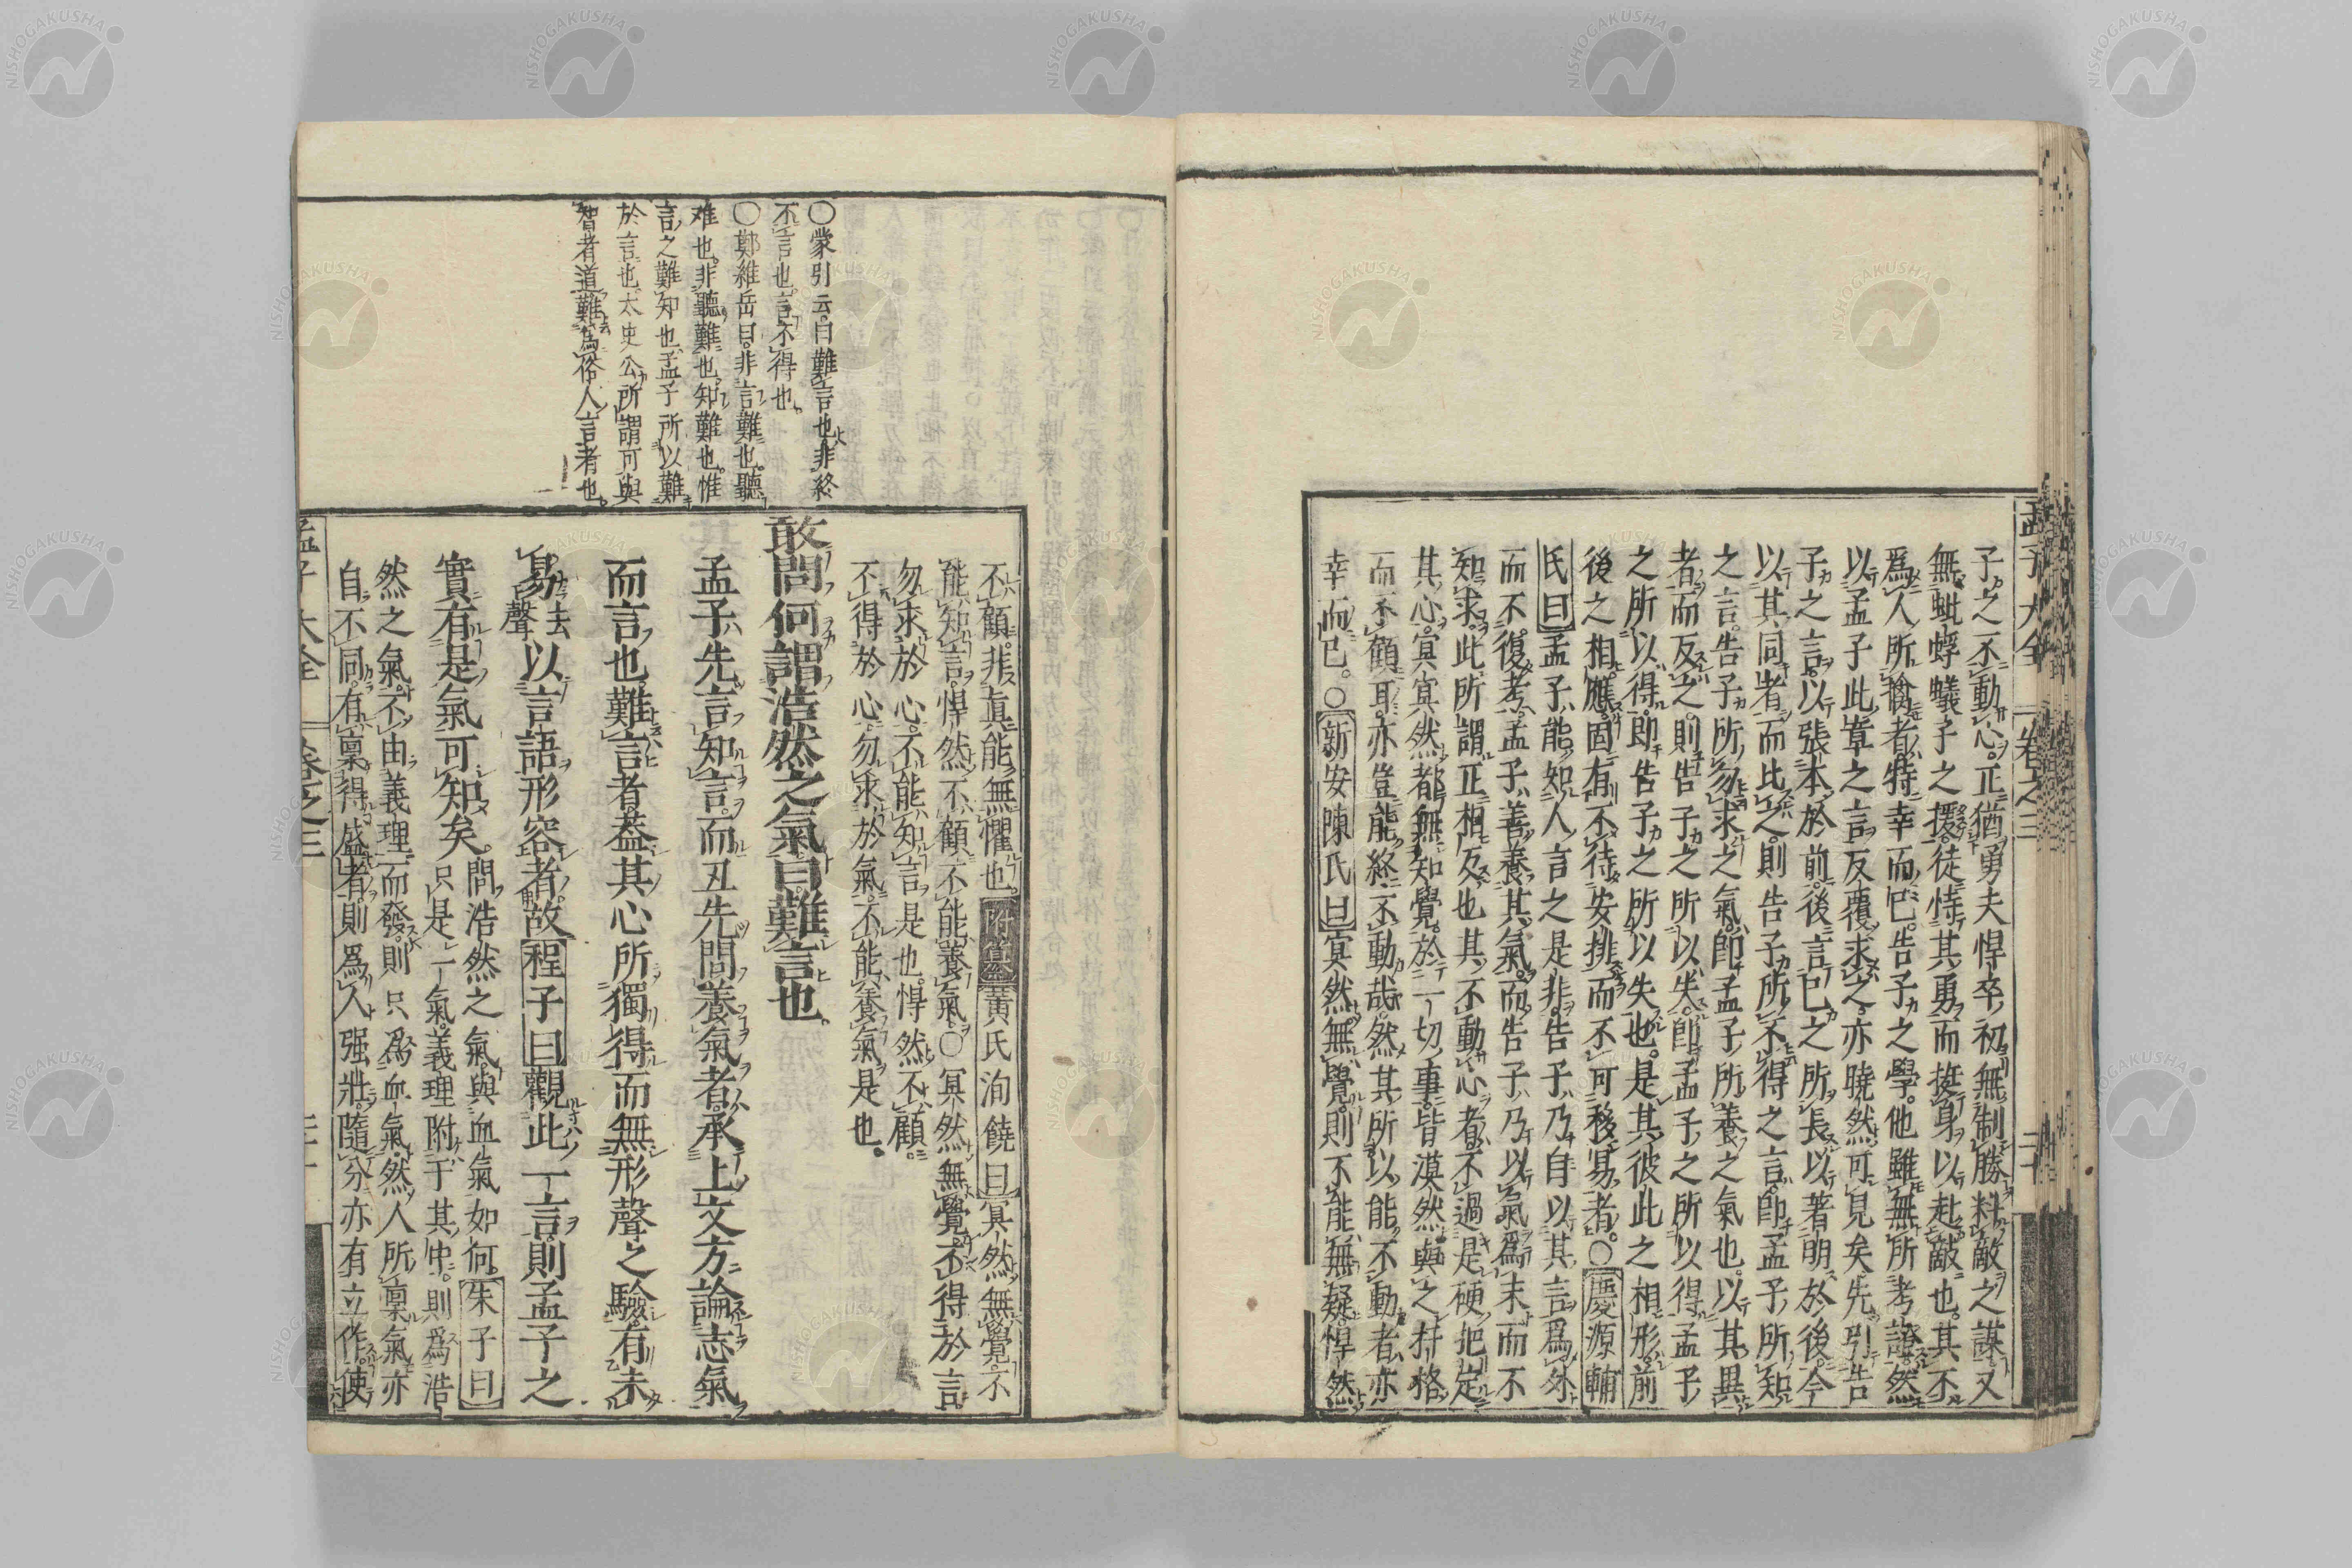 孟子大全 卷之三 二十
子之不動心。正猶勇夫悍卒初無制勝料敵之謀又
無蚍蜉蟻子之援徒恃其勇而挺身以赴敵也。其不
爲人所擒者特幸而已。告子之學。他雖無所考證。然
以孟子此章之言反覆求之。亦曉然可見矣先引告
子之言。以張本於前。後言己之所長以著明於後今
以其同者而比之。則告子所不得之言。即孟子所知
之言。告子所勿求之氣。即孟子所養之氣也。以其異
者而反之。則告子之所以失。即孟子之所以得孟子
之所以得。即告子之所以失也。是其彼此之相形。前
後之相應。固有不待安排而不可移易者。○慶源輔
氏曰孟子能知人言之是非。告子乃自以其言爲外
而不復考。孟子善養其氣。而告子乃以氣爲末而不
知求。此所謂正相反也其不動心者。不過是硬把定
其心。冥冥然都無知覺。於一切事皆漠然與之扞格
而不顧耳。亦豈能終不動哉。然其所以能不動者亦
幸而已。○新安陳氏曰冥然無覺。則不能無疑悍然
○蒙引云。曰難言也非終
不言也。言不得也。
○鄭維岳曰。非言難也。聽
难也。非聽難也。知難也。惟
言之難知也。孟子所以難
於言也。太史公所謂可與
智者道難爲俗人言者也。
不顧。非眞能無懼也。附纂黃氏洵饒曰冥然無覺。不
能知言。悍然不顧不能養氣。○冥然無覺。不得於言
勿求於心。不能知言是也。悍然不顧。
不得於心。勿求於氣。不能養氣是也。
敢問何謂浩然之氣曰難言也。
孟子先言知言。而丑先問養氣者。承上文方論志氣
而言也。難言者。葢其心所獨得而無形聲之驗。有未
易去聲以言語形容者。故程子曰觀此一言。則孟子之
實有是氣可知矣。問浩然之氣。與血氣如何。朱子曰
只是一氣。義理附于其中。則爲浩
然之氣。不由義理而發。則只爲血氣。然人所稟氣亦
自不同。有稟得盛者。則爲人强壯。隨分亦有立作。使
孟子大全 卷之三 二十一